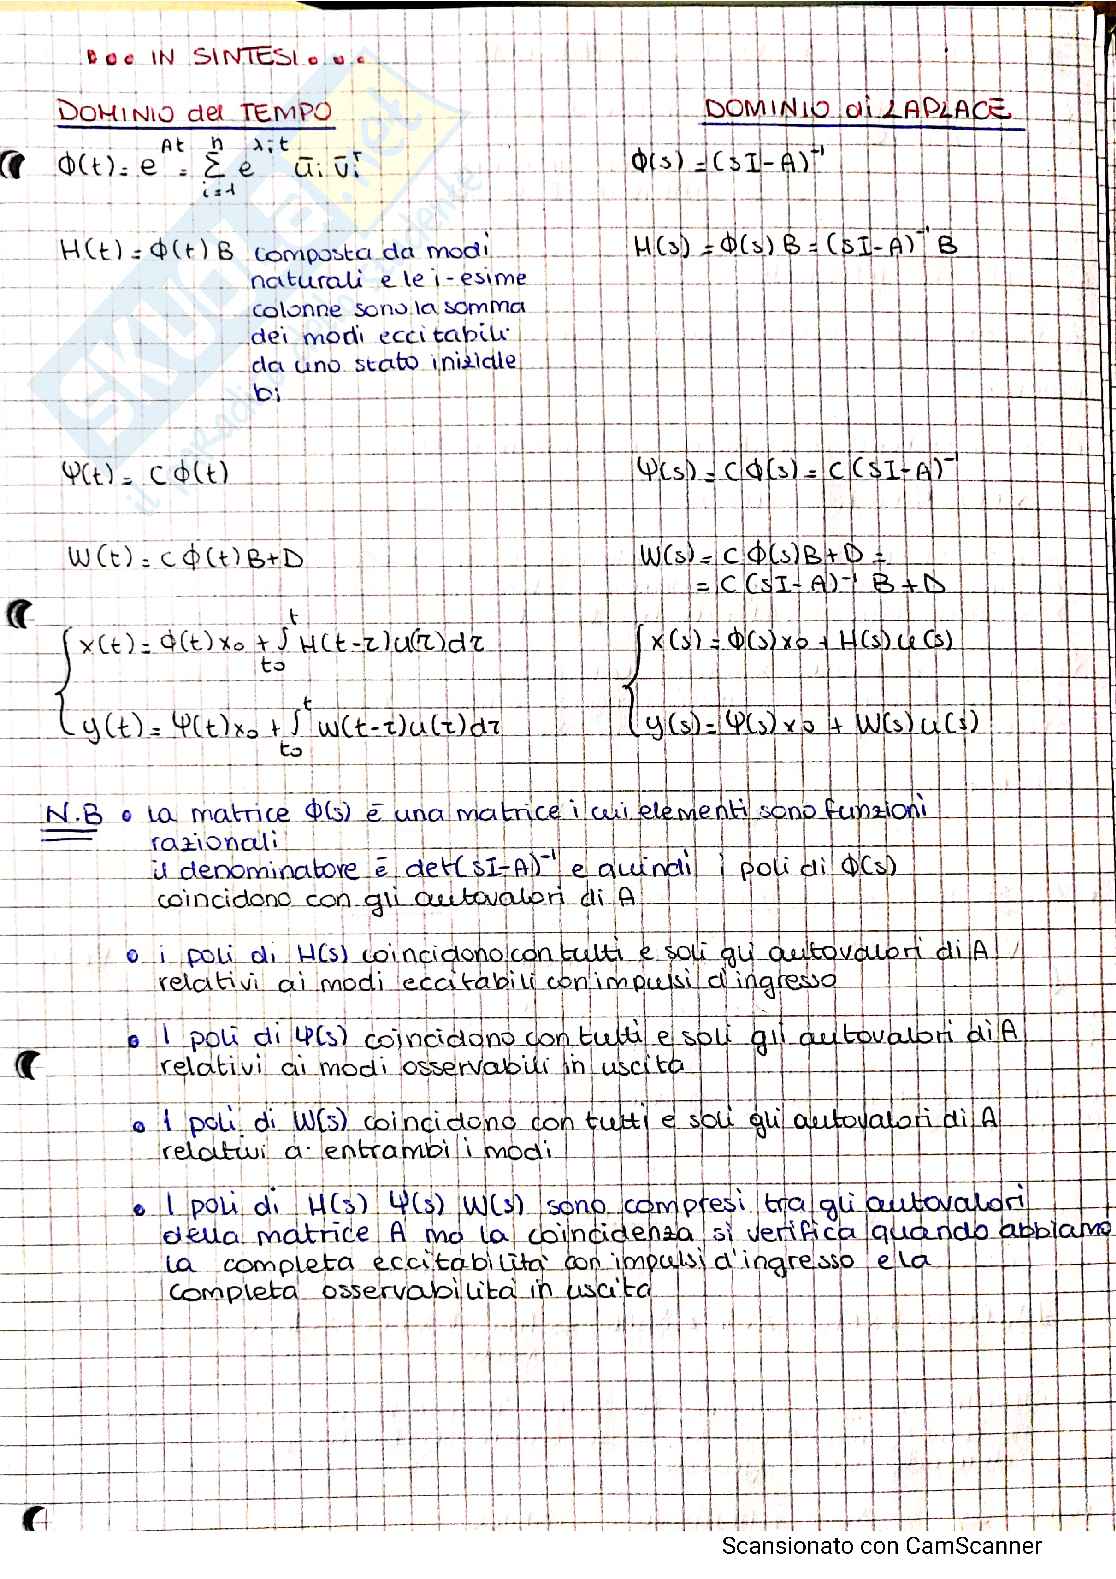 ... IN SINTESI....
DOMINIO del TEMPO
DOMINIO di LAPLACE
Φ(t) = e^At = Σ_{i=1}^{n} e^{λit} ūi v̄i^T
Φ(s) = (sI-A)^-1
H(t) = Φ(t) B composta da modi
naturali e le i-esime
colonne sono la somma
dei modi eccitabili
da uno stato iniziale
bi
H(s) = Φ(s) B = (SI-A)^-1 B
Ψ(t) = C Φ(t)
Ψ(s) = C Φ(s) = C (SI-A)^-1
W(t) = C Φ(t) B+D
W(s) = C Φ(s) B+D =
= C (SI-A)^-1 B + D
x(t) = Φ(t) x0 + ∫_{t0}^{t} H(t-τ) u(τ) dτ
x(s) = Φ(s) x0 + H(s) u(s)
y(t) = Ψ(t) x0 + ∫_{t0}^{t} W(t-τ) u(τ) dτ
y(s) = Ψ(s) x0 + W(s) u(s)
N.B • la matrice Φ(s) è una matrice i cui elementi sono funzioni
razionali
il denominatore è det(SI-A)^-1 e quindi i poli di Φ(s)
coincidono con gli autovalori di A
• i poli di H(s) coincidono con tutti e soli gli autovalori di A
relativi ai modi eccitabili con impulsi d'ingresso
• I poli di Ψ(s) coincidono con tutti e soli gli autovalori di A
relativi ai modi osservabili in uscita
• I poli di W(s) coincidono con tutti e soli gli autovalori di A
relativi a entrambi i modi
• I poli di H(s) Ψ(s) W(s) sono compresi tra gli autovalori
della matrice A ma la coincidenza si verifica quando abbiamo
la completa eccitabilità con impulsi d'ingresso e la
completa osservabilità in uscita
Scansionato con CamScanner